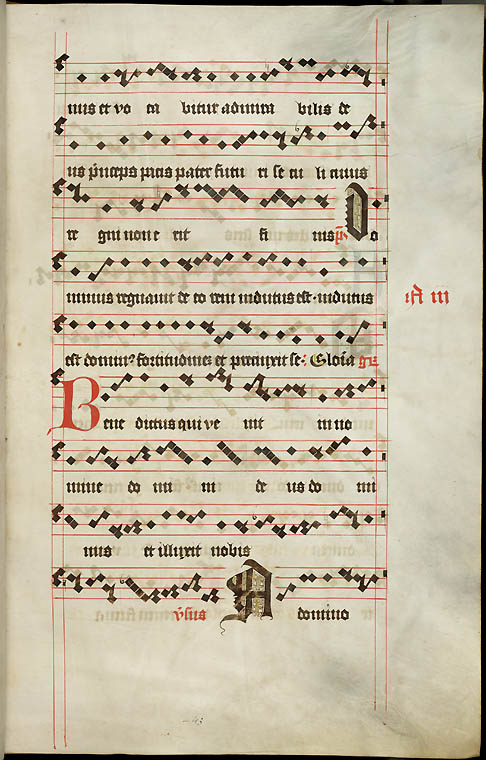 nus et vo ca bitur admira bilis de
us p̄nceps pacis pater futu ri se cu li cuius
re gni non e rit fi nis p̄s Do
minus regnauit de co rem indutus est indutus
A m
est dominꝰ fortitudinē et precinxit se Gloria gr̄
Bene dictus qui ve nit in no
mine do mi ni de us do mi
nus et illuxit nobis
v̄sus A domino